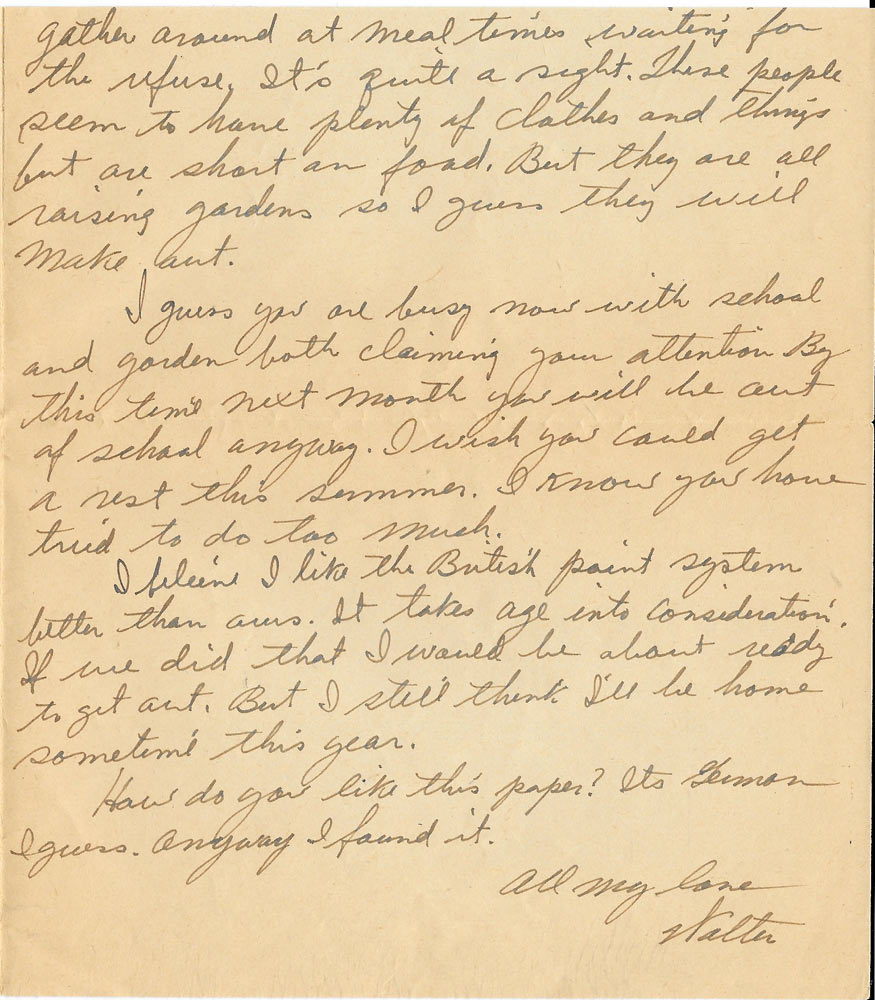 gather around at meal times waiting for
the refuse. It's quite a sight. These people
seem to have plenty of clothes and things
but are short on food. But they are all
raising gardens so I guess they will
make out.
I guess you are busy now with school
and garden both claiming your attention By
this time next month you will be out
of school anyway. I wish you could get
a rest this summer. I know you have
tried to do too much.
I believe I like the British point system
better than ours. It takes age into consideration.
If we did that I would be about ready
to get out. But I still think I'll be home
sometime this year.
How do you like this paper? Its German
I guess. Anyway I found it.
All my love
Walter